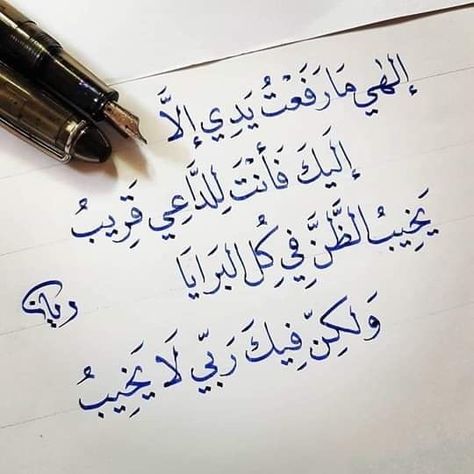 إلهي مَا رَفَعْتُ يَدِي إلَّا
إلَيكَ فَأَنْتَ لِلدَّاعِي قَرِيبُ
يَخِيبُ الظَّنَّ فِي كُلِ البَرَايَا
وَلَكِنّ فِيكَ رَبّي لَا يَخِيبُ
ريان